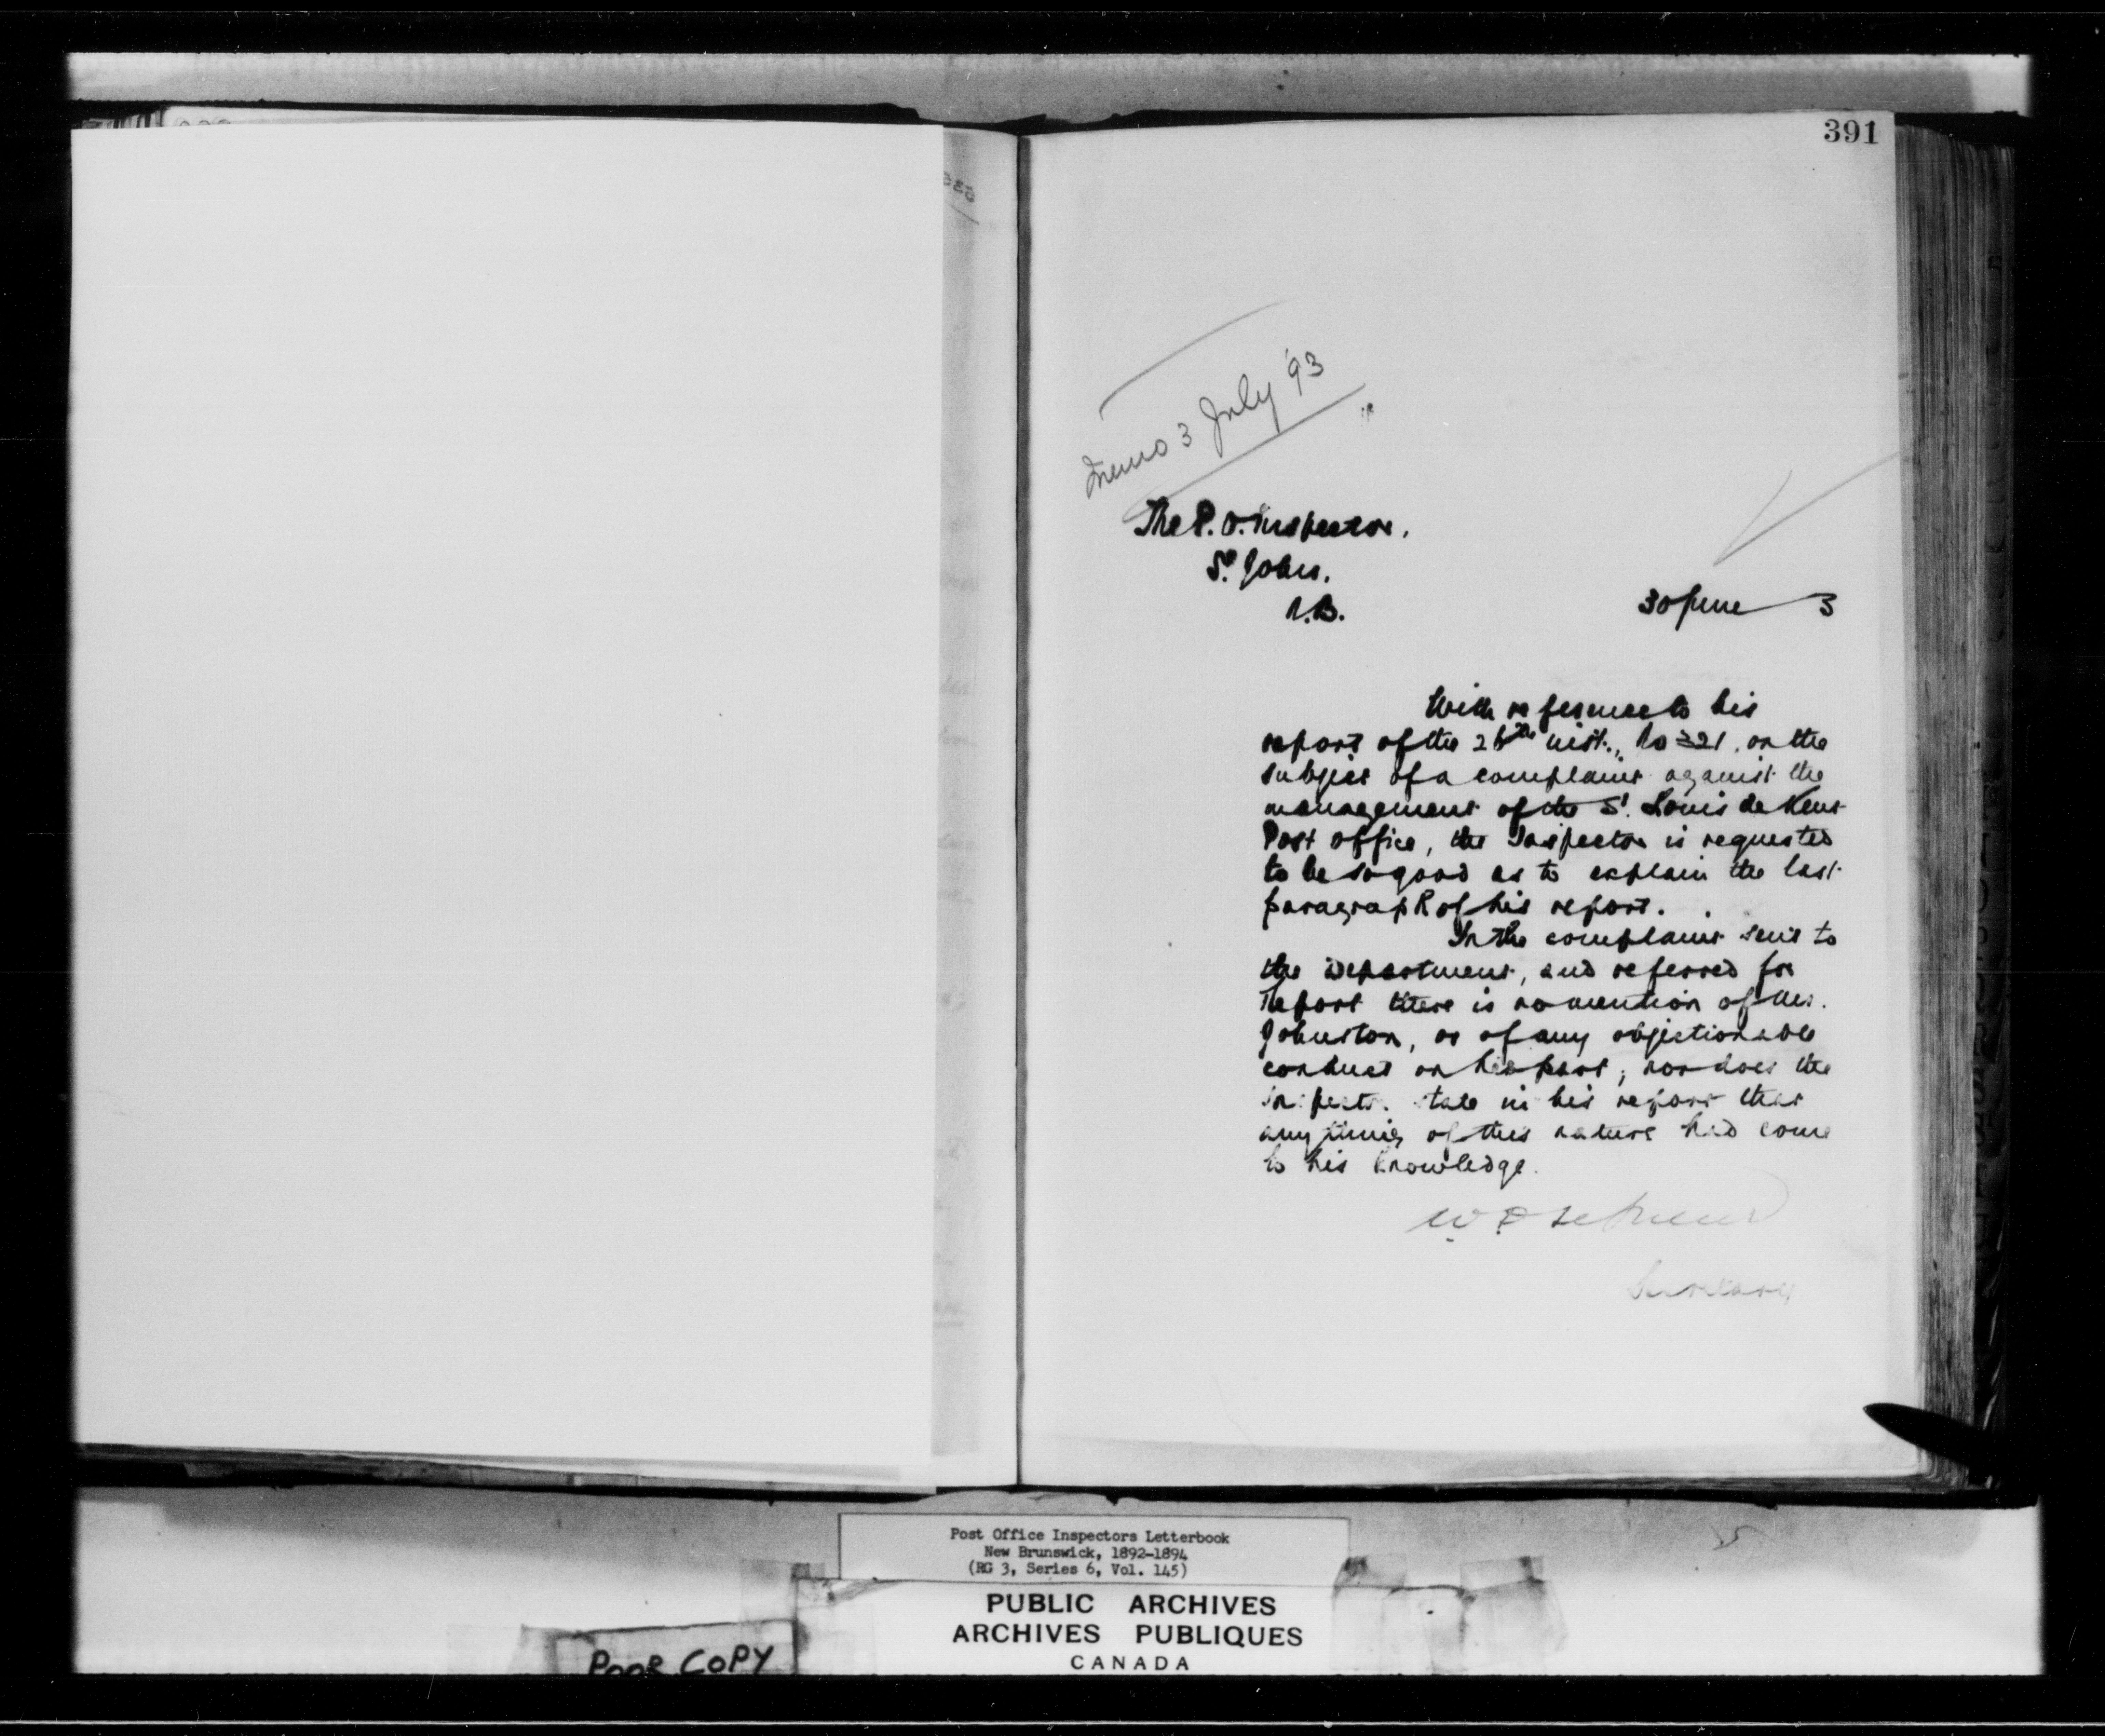 391
Memo 3 July '93
The P. O. Inspector.
St. John.
N.B.
30 June 3
With reference to his
report of the 26th inst., No 321, on the
subject of a complaint against the
management of the St. Louis de Kent
Post Office, the Inspector is requested
to be so good as to explain the last
paragraph of his report.
In the complaint sent to
the Department, and referred for
report there is no mention of Mr.
Johnston, or of any objectionable
conduct on his part; nor does the
Inspector state in his report that
any thing of this nature had come
to his knowledge.
Secretary
Post Office Inspectors Letterbook
New Brunswick, 1892-1894
(RG 3, Series 6, Vol. 145)
PUBLIC ARCHIVES
ARCHIVES PUBLIQUES
CANADA
POOR COPY